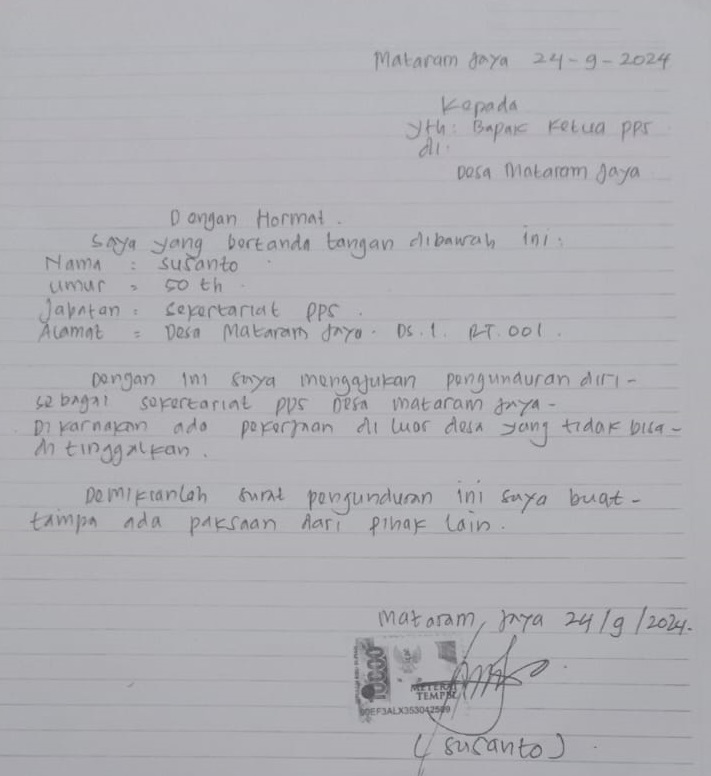 Mataram Jaya 24-9-2024
Kepada
Yth: Bapak Ketua PPS
di:
Desa Mataram Jaya
Dengan Hormat.
Saya yang bertanda tangan dibawah ini:
Nama : Susanto
Umur : 50 th.
Jabatan : Sekertariat PPS.
Alamat : Desa Mataram Jaya. Ds.1. RT.001.
Dengan ini saya mengajukan pengunduran diri-
sebagai sekertariat PPS Desa Mataram Jaya-
Di karnakan ada pekerjaan di luar desa yang tidak bisa-
di tinggalkan.
Demikianlah surat pengunduran ini saya buat-
tampa ada paksaan dari pihak lain.
Mataram, Jaya 24/9/2024.
10000
METERAI
TEMPEL
(Susanto).